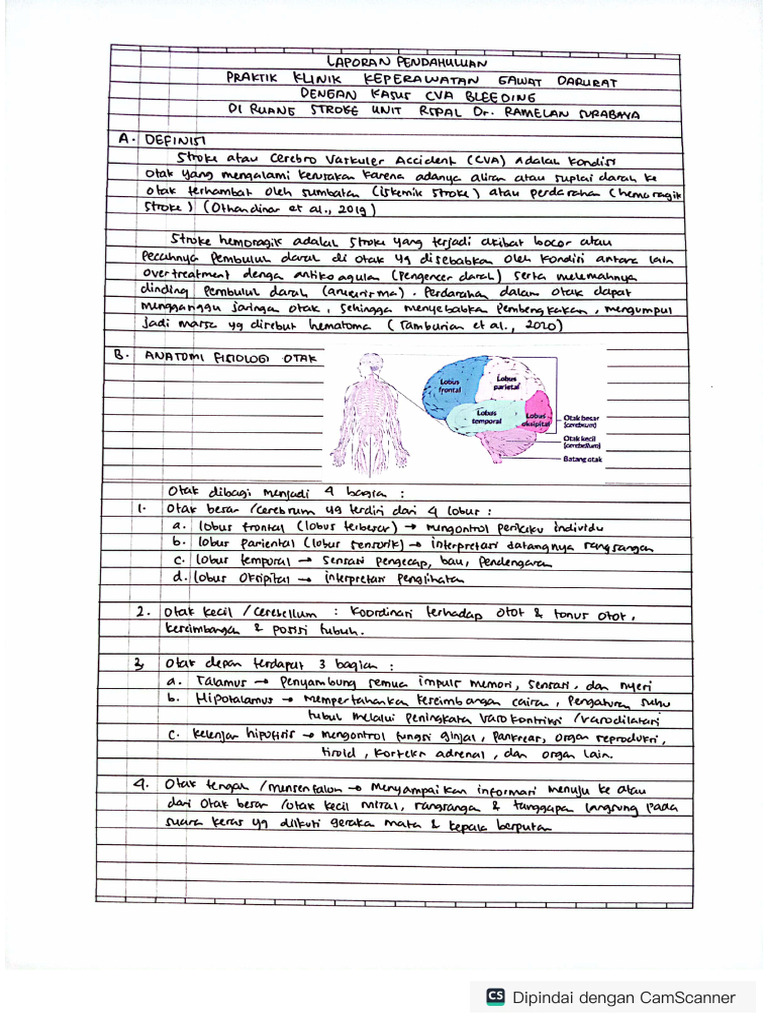 LAPORAN PENDAHULUAN
PRAKTIK KLINIK KEPERAWATAN GAWAT DARURAT
DENGAN KASUS CVA BLEEDING
DI RUANG STROKE UNIT RSPAL Dr. RAMELAN SURABAYA
A. DEFINISI
Stroke atau Cerebro Vaskuler Accident (CVA) Adalah kondisi
Otak yang mengalami kerusakan karena adanya aliran atau suplai darah ke
otak terhambat oleh sumbatan (iskemik stroke) atau perdarahan (hemoragik
stroke) (Othandinar et al., 2019)
Stroke hemoragik adalah stroke yang terjadi akibat bocor atau
Pecahnya Pembuluh darah di otak yg disebabkan oleh kondisi antara lain
overtreatment dengan antikoagulan (pengencer darah) serta melemahnya
dinding Pembuluh darah (aneurisma). Perdarahan dalam otak dapat
mengganggu jaringan otak, sehingga menyebabkan Pembengkakan, mengumpul
jadi massa yg disebut hematoma (Tamburian et al., 2020)
B. ANATOMI FISIOLOGI OTAK
Lobus frontal
Lobus parietal
Lobus temporal
Lobus oksipital
Otak besar (cerebrum)
Otak kecil (cerebellum)
Batang otak
Otak dibagi menjadi 4 bagian :
1. Otak besar / cerebrum yg terdiri dari 4 lobus :
a. lobus frontal (lobus terbesar) → mengontrol perilaku individu
b. lobus pariental (lobus sensorik) → interpretasi datangnya rangsangan
c. lobus temporal → sensasi pengecap, bau, Pendengaran
d. lobus Oksipital → interpretasi Penglihatan
2. Otak kecil / cerebellum : Koordinasi terhadap otot & tonus otot,
keseimbangan & posisi tubuh.
3. Otak depan terdapat 3 bagian :
a. Talamus → Penyambung semua impuls memori, sensasi, dan nyeri
b. Hipotalamus → mempertahankan keseimbangan cairan, Pengaturan suhu
tubuh melalui peningkatan vasokontriksi / vasodilatasi
c. Kelenjar hipofisis → mengontrol fungsi ginjal, pankreas, organ reproduksi,
tiroid, korteks adrenal, dan organ lain.
4. Otak tengah / mensenfalon → Menyampaikan informasi menuju ke atau
dari Otak besar / otak kecil misal, rangsangan & tanggapan langsung pada
suara keras yg diikuti gerakan mata & kepala berputar
CS Dipindai dengan CamScanner